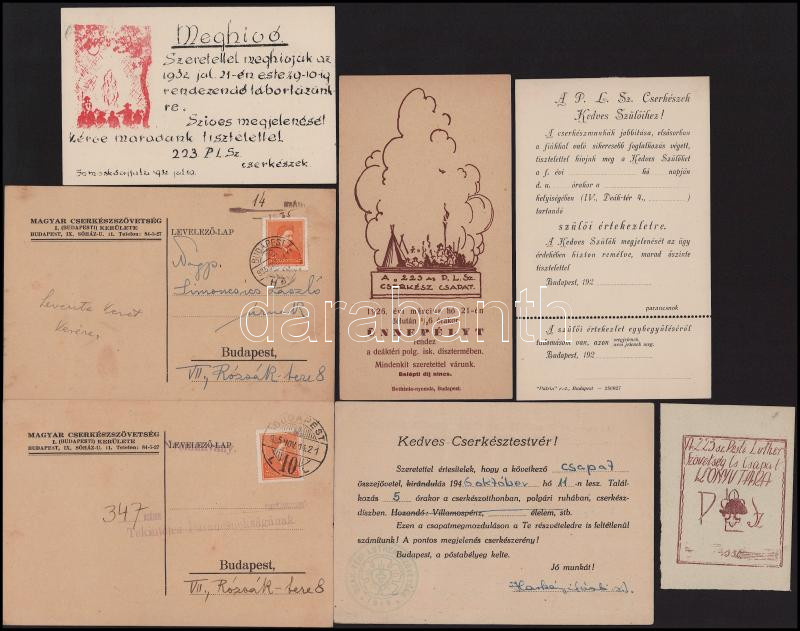 Meghivó.
Szeretettel meghivjuk az
1932 jul. 21-én este ½9-10-ig
rendezendő tábortüzünk-
re.
Szives megjelenését
kérve maradunk tisztelettel
223 P.L.Sz.
cserkészek.
1932 jul. 19.
A „223 as" P.L.Sz.
CSERKÉSZ CSAPAT.
1926. évi március hó 21-én
délután ½6 órakor
ÜNNEPÉLYT
rendez
a deáktéri polg. isk. dísztermében.
Mindenkit szeretettel várunk.
Belépti díj nincs.
Bethánia-nyomda, Budapest.
A P. L. Sz. Cserkészek
Kedves Szülőihez!
A cserkészmunkák jobbítása, elsősorban
a fiúkkal való sikeresebb foglalkozás végett,
tisztelettel hívjuk meg a Kedves Szülőket
a f. évi hó napján
d. u. órakor a
helyiségében (IV., Deák-tér 4., )
tartandó
szülői értekezletre.
A Kedves Szülők megjelenését az ügy
érdekében bizton remélve, marad őszinte
tisztelettel
Budapest, 192
parancsnok
A szülői értekezlet egybegyűléséről
tudomásom van, azon megjelenek. azon jelenek meg.
Budapest, 192
"Pátria" r.-t., Budapest — 250827
MAGYAR CSERKÉSZSZÖVETSÉG
I. (BUDAPESTI) KERÜLETE
BUDAPEST, IX, SÓHÁZ-U. 11. Telefon: 84-5-27
LEVELEZŐ-LAP
14
BUDAPEST
Nagys.
Simoncsics László
urnak
Budapest,
VII., Rózsák-tere 8
MAGYAR CSERKÉSZSZÖVETSÉG
I. (BUDAPESTI) KERÜLETE
BUDAPEST, IX, SÓHÁZ-U. 11. Telefon: 84-5-27
LEVELEZŐ-LAP
Nyomtatvány.
BUDAPEST
10
347
Tekintetes Parancsnokságának
Budapest,
VII., Rózsák-tere 8
Kedves Cserkésztestvér!
Szeretettel értesítelek, hogy a következő csapat
összejövetel, kirándulás 1946 október hó 11-n lesz. Talál-
kozás 5 órakor a cserkészotthonban, polgári ruhában, cserkész-
díszben. Hozandó: Villamospénz, élelem, stb.
Ezen a csapatmegmozduláson a Te részvételedre is feltétlenül
számítunk! A pontos megjelenés cserkészerény!
Budapest, a postabélyeg kelte.
Jó munkát!
A 223 sz Pesti Luther
Szövetség Cs. Csapat
KÖNYVTÁRA
darabanth